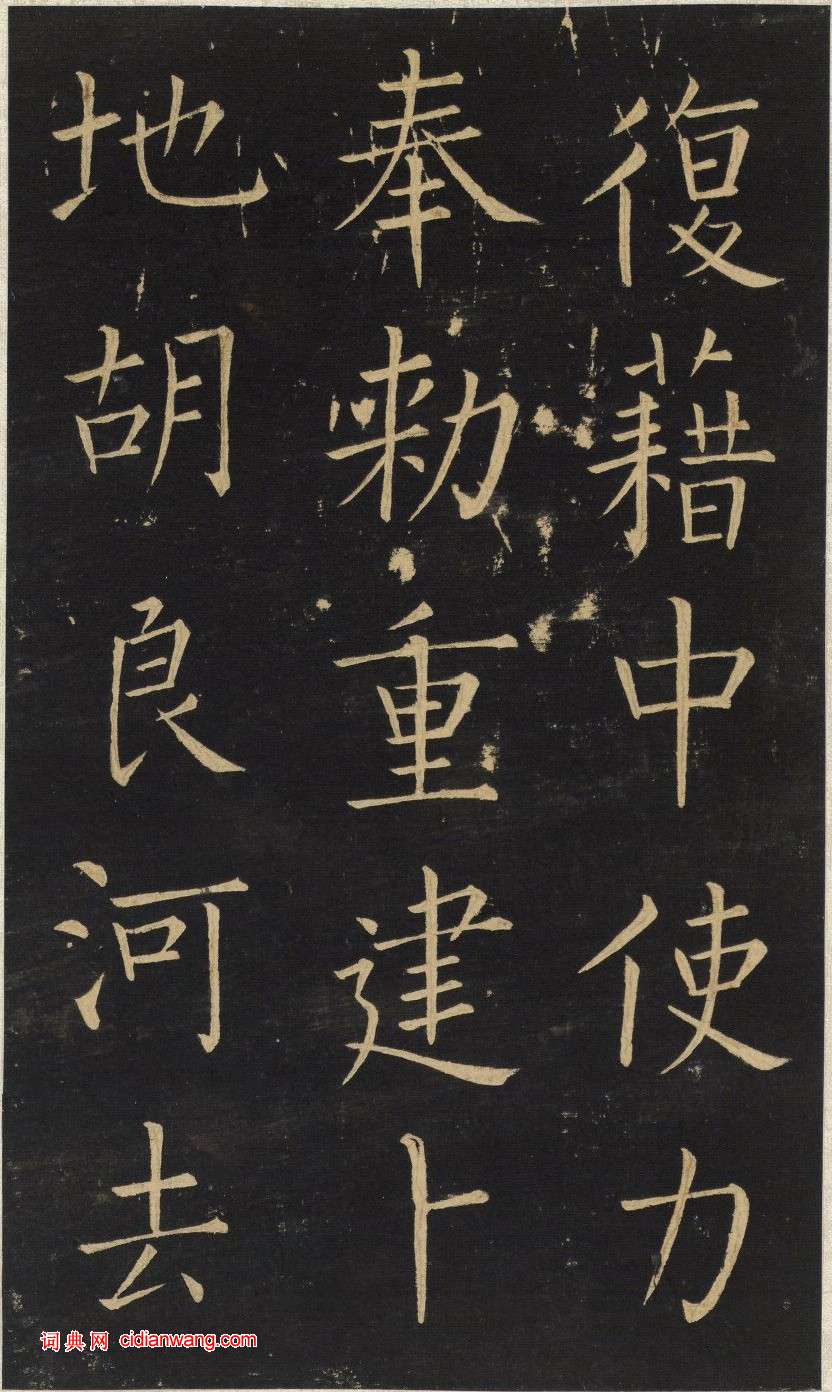 復藉中使力
奉勑重建卜
地胡良河去
词典网 cidianwang.com